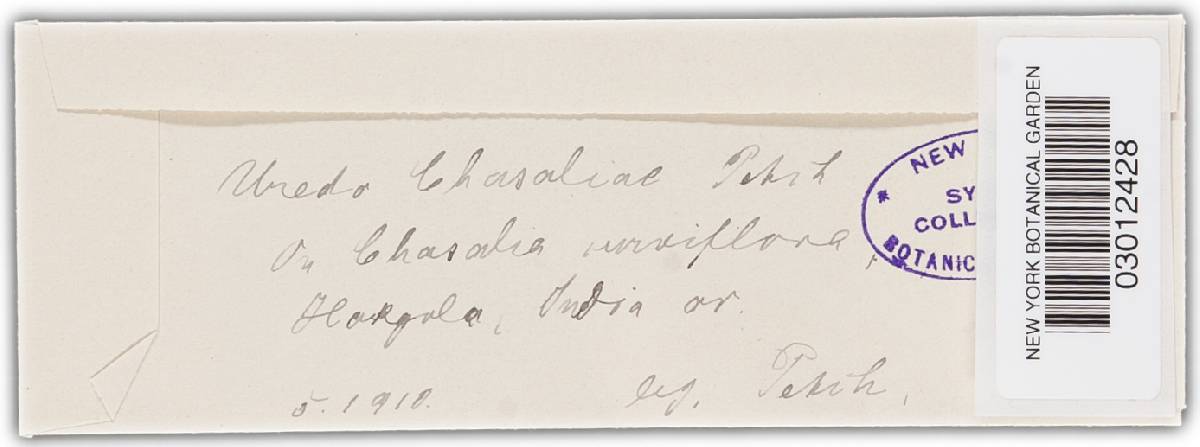 Uredo Chasaliae Petch
On Chasalia curviflora,
Hakgala, India or.
5. 1910. leg. Petch,
NEW
SY
COLL
BOTANIC
NEW YORK BOTANICAL GARDEN
03012428